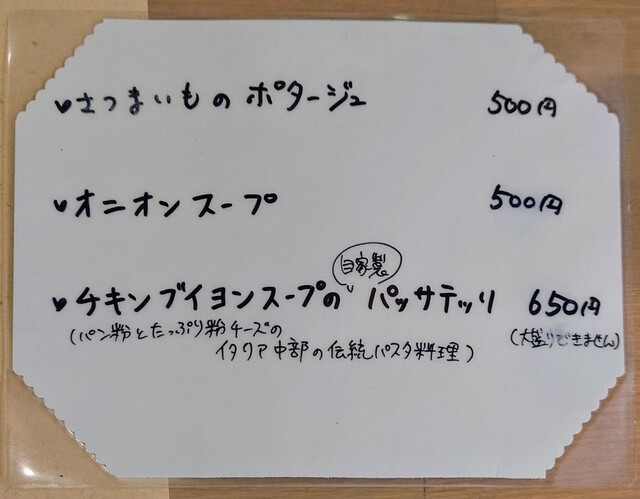 ♥さつまいものポタージュ 500円
♥オニオンスープ 500円
自家製
♥チキンブイヨンスープの パッサテッリ 650円
(パン粉とたっぷり粉チーズの (大盛りできません)
イタリア中部の伝統パスタ料理)